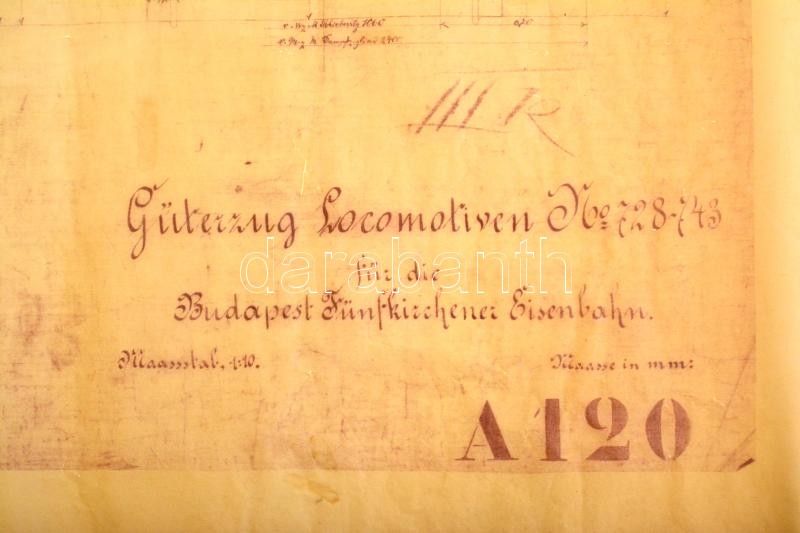 III R
Güterzug Locomotiven No 728-743
für die
Budapest Fünfkirchener Eisenbahn.
Maassstab, 1:10. Maasse in mm:
A120
darabanth